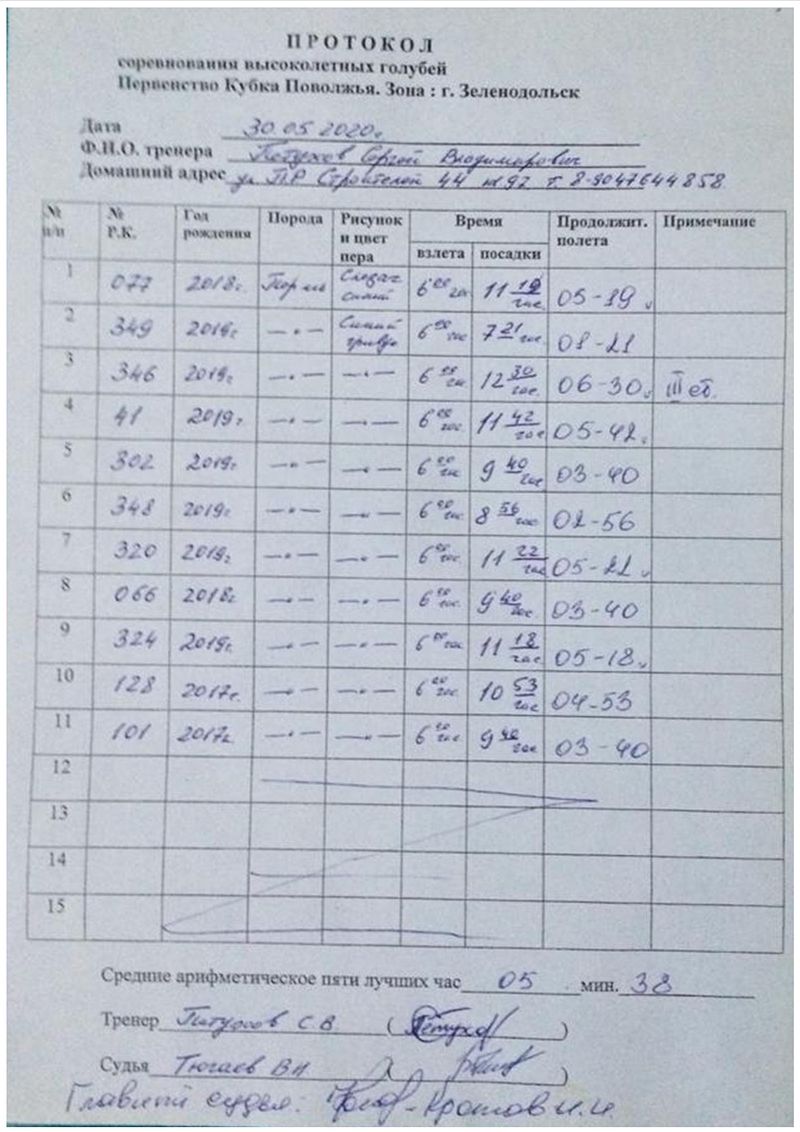 ПРОТОКОЛ
соревнования высоколетных голубей
Первенство Кубка Поволжья. Зона : г. Зеленодольск
Дата 30.05.2020г.
Ф.И.О. тренера Петухов Сергей Владимирович
Домашний адрес ул. ПР Строителей 44 кв.92 т. 8-9047644858
№ п/п № Р.К. Год рождения Порода Рисунок и цвет пера Время взлета посадки Продолжит. полета Примечание
1 077 2018г. 6 00 час 11 19 час. 05-19
2 349 2019г. —·— Синий 6 00 час 7 21 час. 01-21
3 346 2019г —·— —·— 6 00 час 12 30 час. 06-30 III
4 41 2019г. —·— —·— 6 00 час. 11 42 час 05-42
5 302 2019г. —·— —·— 6 00 час 9 40 час. 03-40
6 348 2019г. —·— —·— 6 00 час. 8 56 час 02-56
7 320 2019г. —·— —·— 6 00 час. 11 22 час 05-22
8 066 2018г —·— —·— 6 00 час. 9 40 час. 03-40
9 324 2019г. —·— —·— 6 00 час 11 18 час. 05-18
10 128 2017г. —·— —·— 6 00 час. 10 53 час 04-53
11 101 2017г. —·— —·— 6 00 час 9 40 час. 03-40
12
13
14
15
Средние арифметическое пяти лучших час 05 мин. 38
Тренер Петухов С.В. (Петухов)
Судья Тюгаев В.Н ( )
Главный судья: Кротов Н.И.